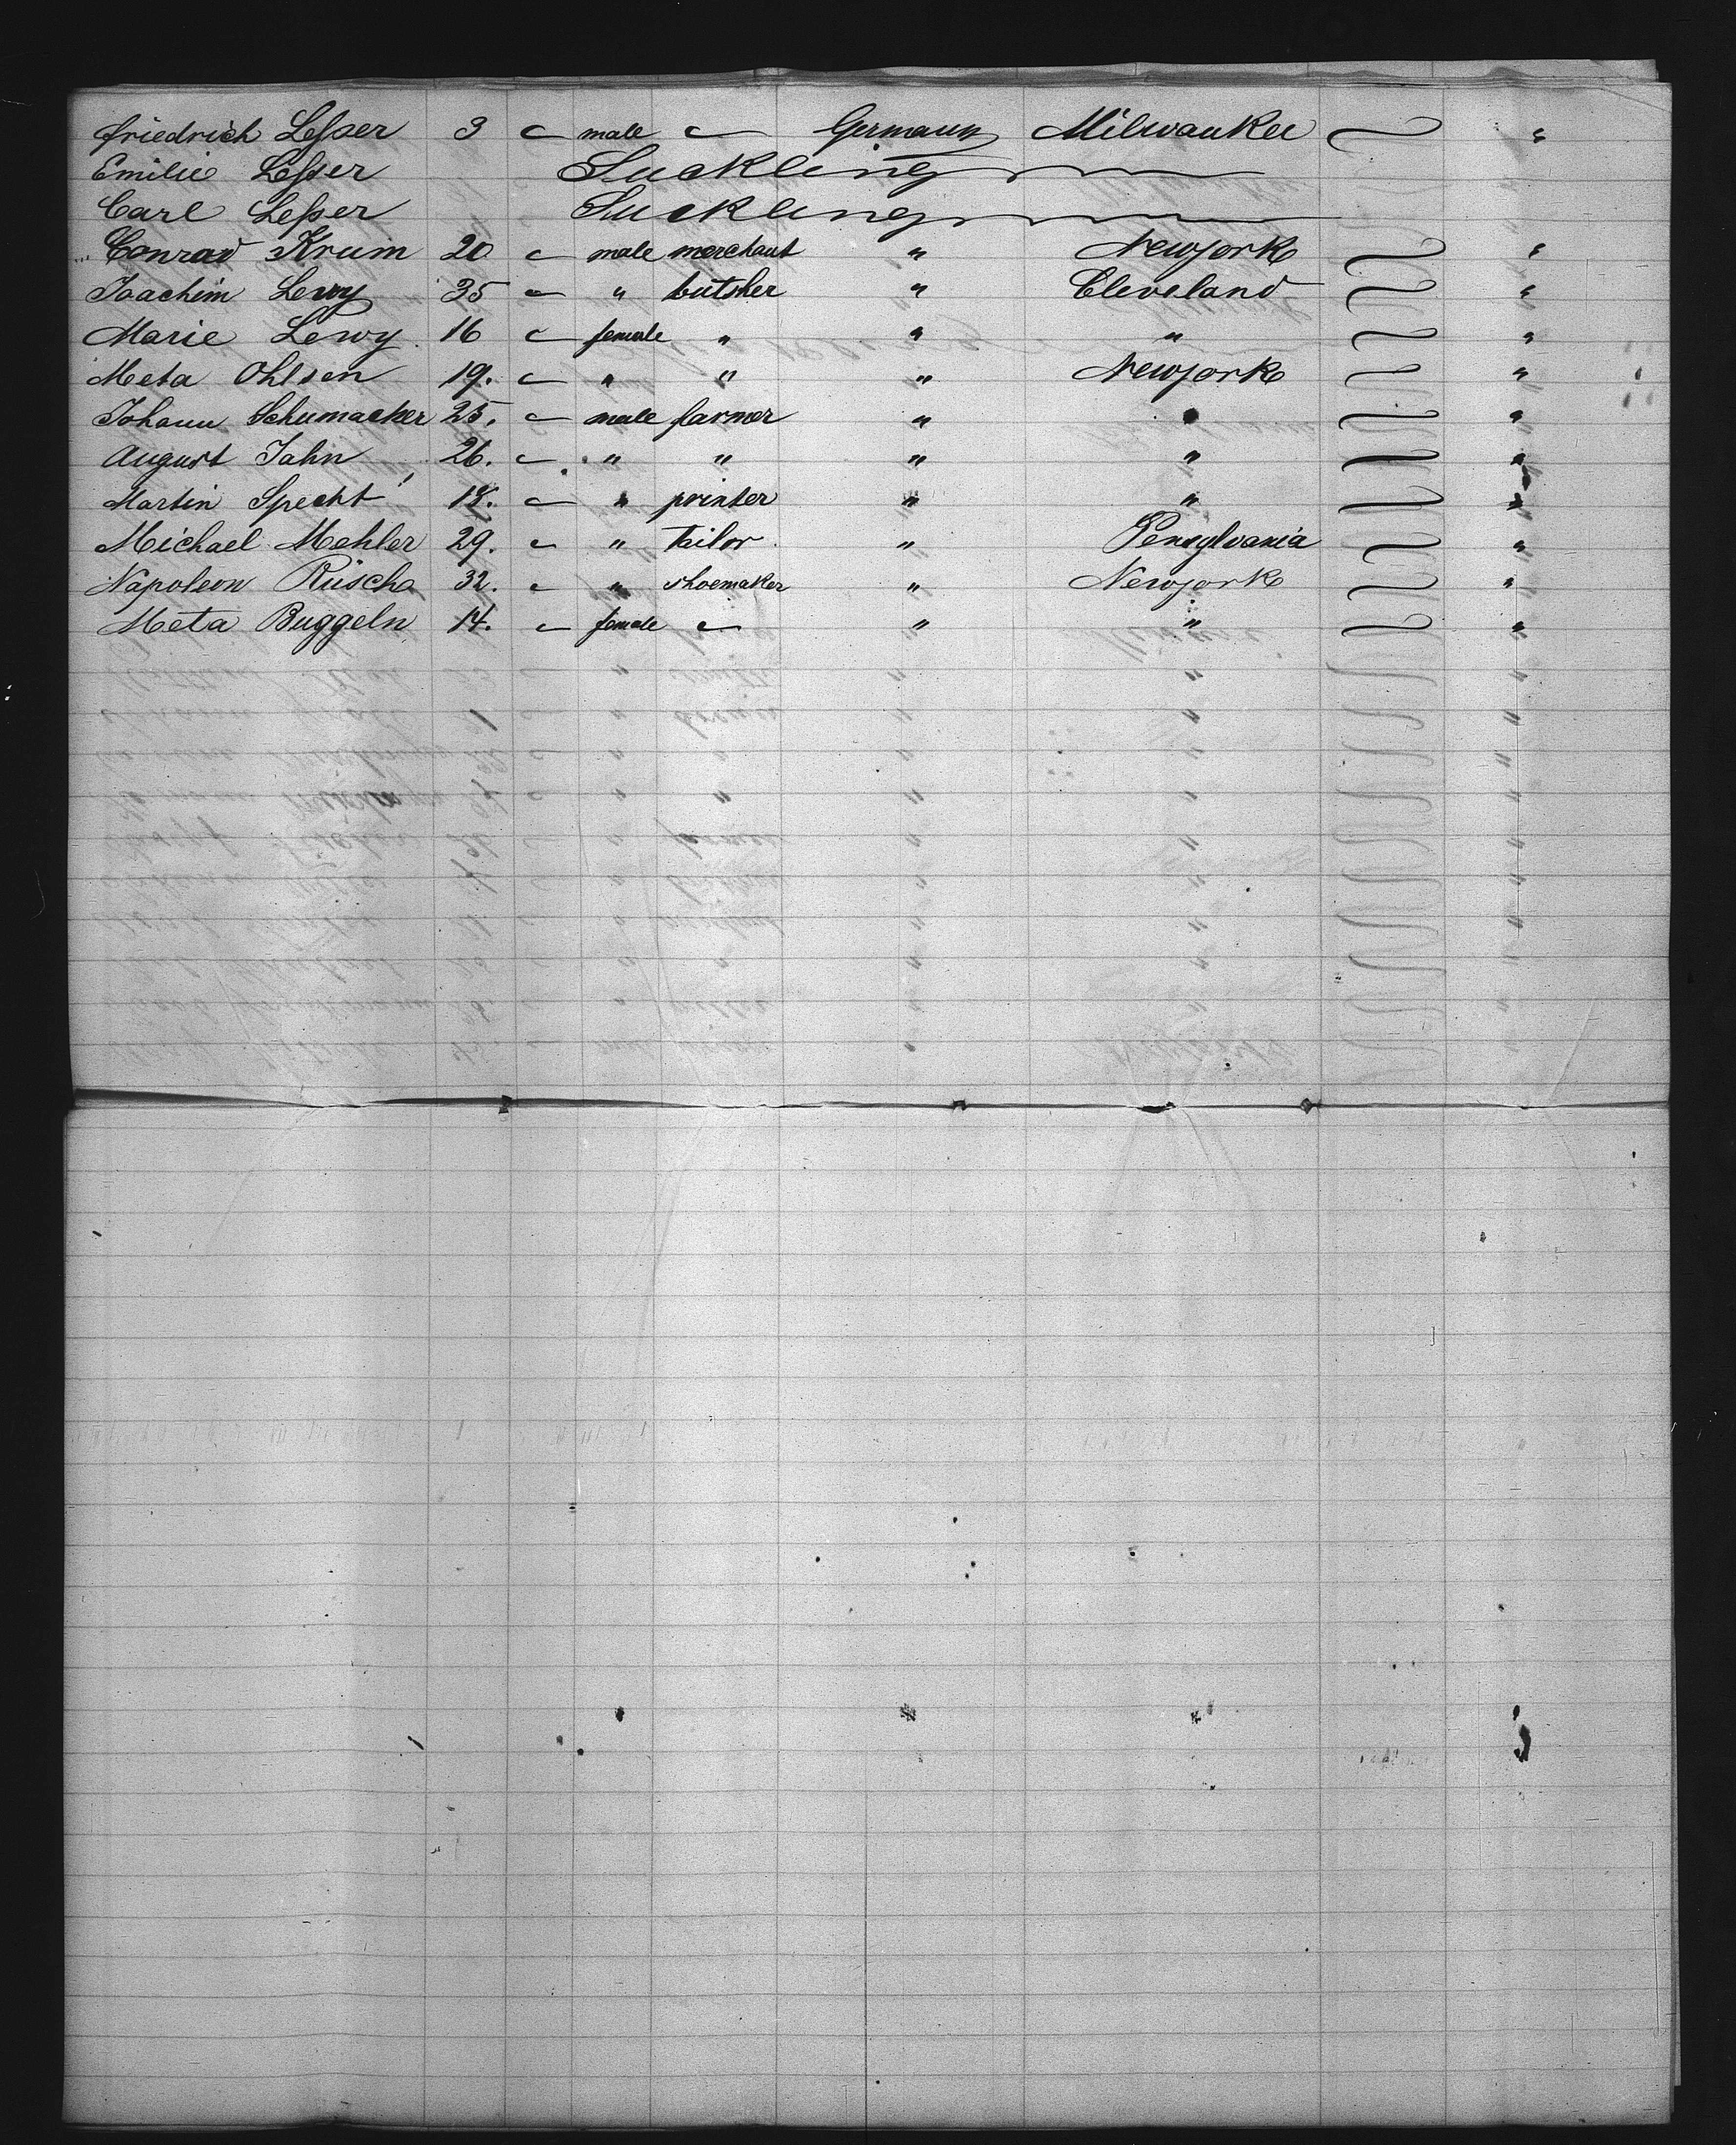 Friedrich Leſser 3 — male — Germany Milwaukee "
Emilie Leſser Suckling
Carl Leſser Suckling
Conrad Krum 20 — male merchant " Newyork "
Joachim Lewy 35 — " butsher " Cleveland "
Marie Lewy 16 — female " " " "
Meta Ohlsen 19. — " " " Newyork "
Johann Schumacker 25. — male farmer " " "
August Jahn 26. — " " " " "
Martin Specht 18. — " printer " " "
Michael Mehler 29. — " Tailor " Pensylvania "
Napoleon Rüsch 32. — " shoemaker " Newyork "
Meta Buggeln 14. — female — " " "